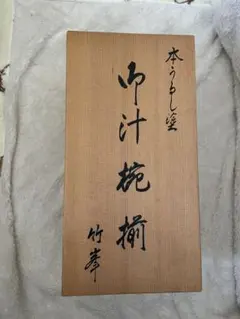 本うるし塗
御汁椀揃
竹峯